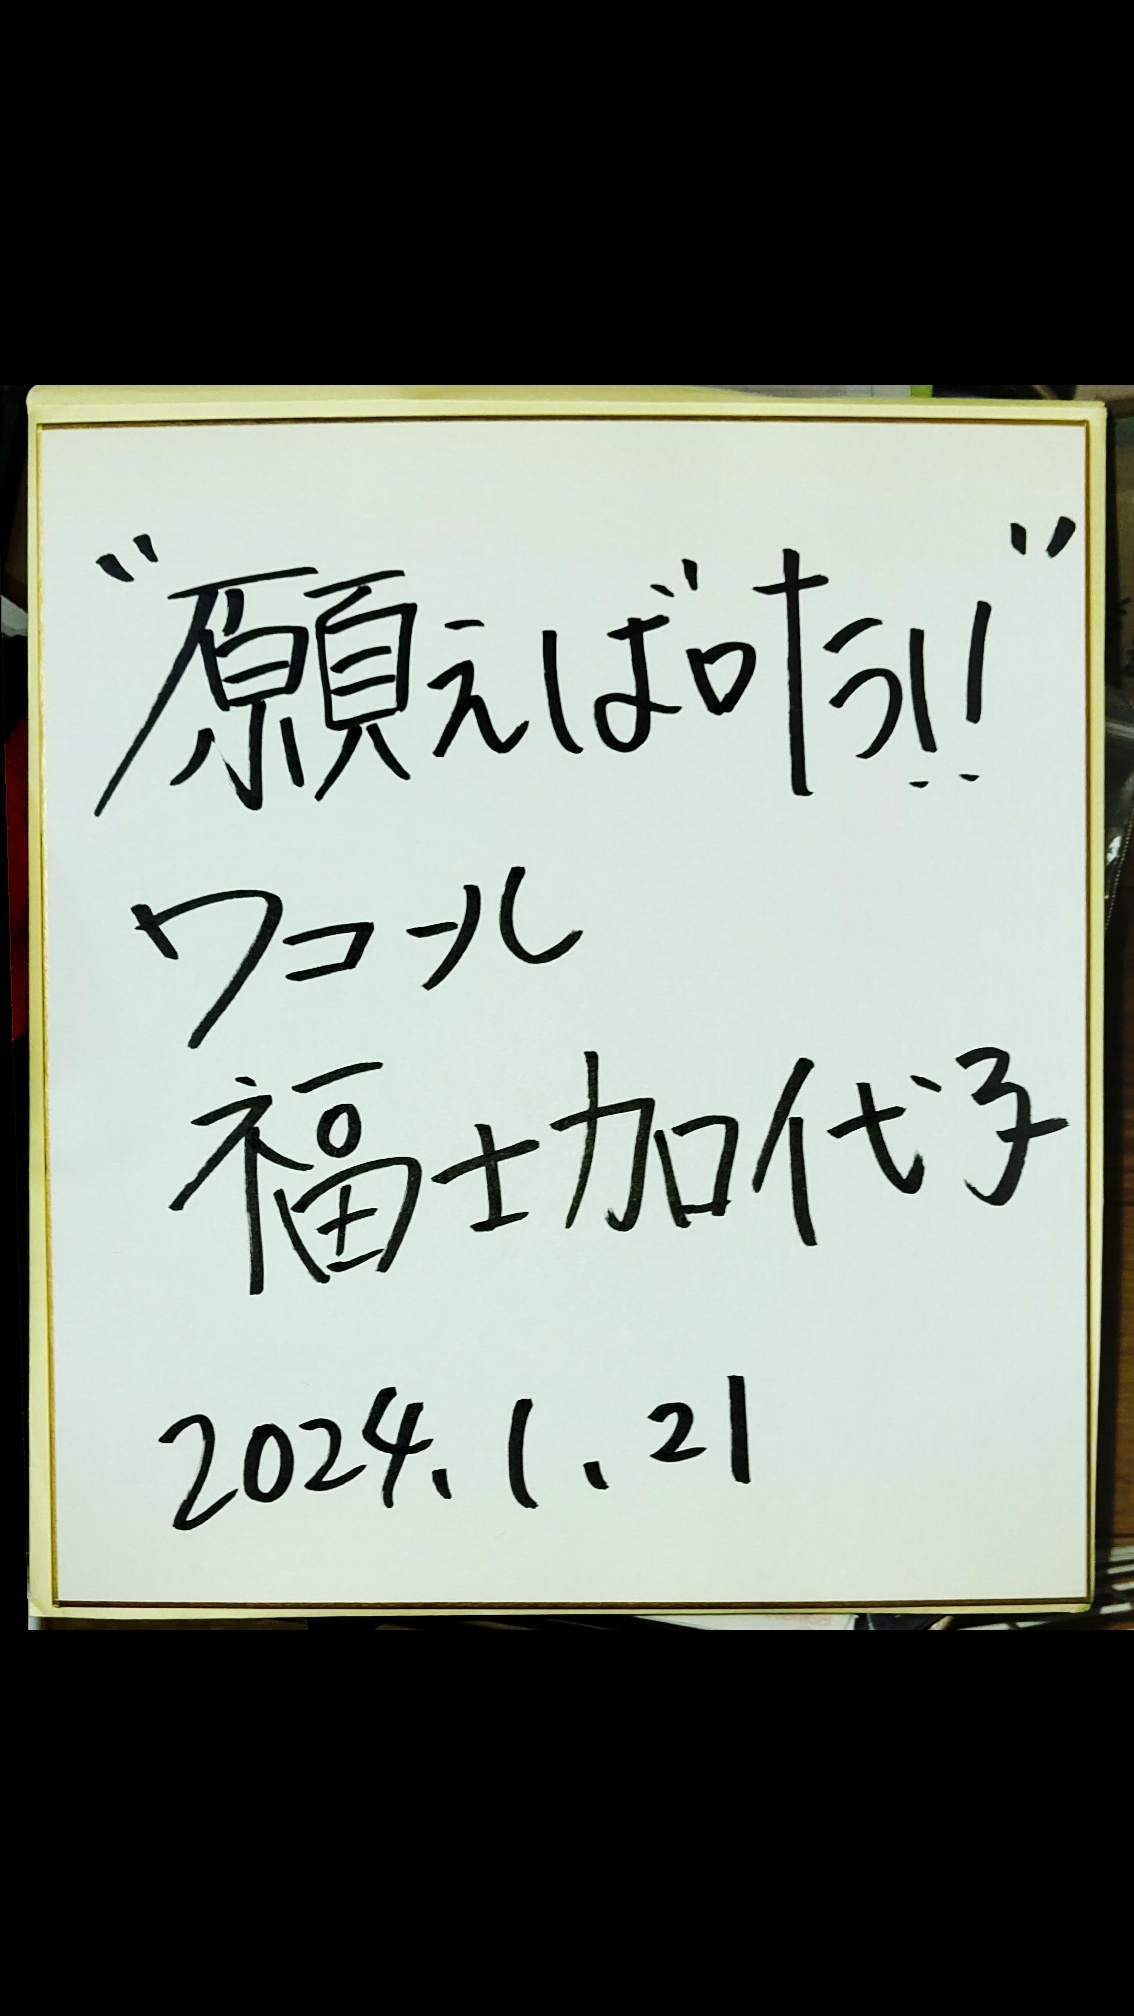 "願えば叶う!!"
ワコール
福士加代子
2024.1.21